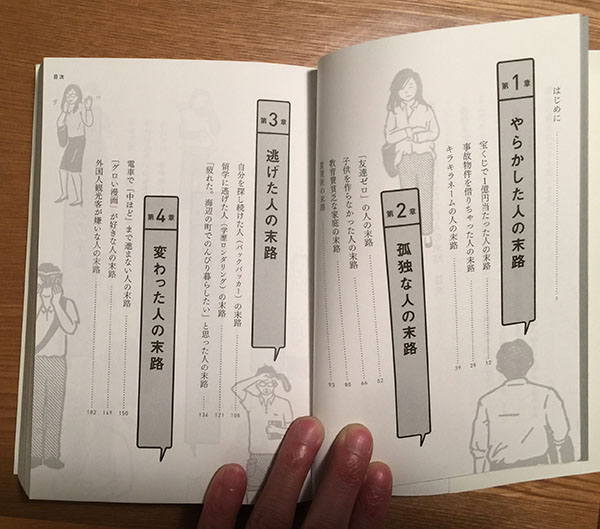 はじめに
第1章 やらかした人の末路
宝くじで1億円当たった人の末路 12
事故物件を借りちゃった人の末路 25
キラキラネームの人の末路 39
第2章 孤独な人の末路
「友達ゼロ」の人の末路 52
子供を作らなかった人の末路 66
教育費貧乏な家庭の末路 80
賃貸派の末路 93
目次
第3章 逃げた人の末路
自分を探し続けた人(バックパッカー)の末路 108
留学に逃げた人(学歴ロンダリング)の末路 121
「疲れた。海辺の町でのんびり暮らしたい」と思った人の末路 134
第4章 変わった人の末路
電車で「中ほど」まで進まない人の末路 150
「グロい漫画」が好きな人の末路 169
外国人観光客が嫌いな人の末路 182